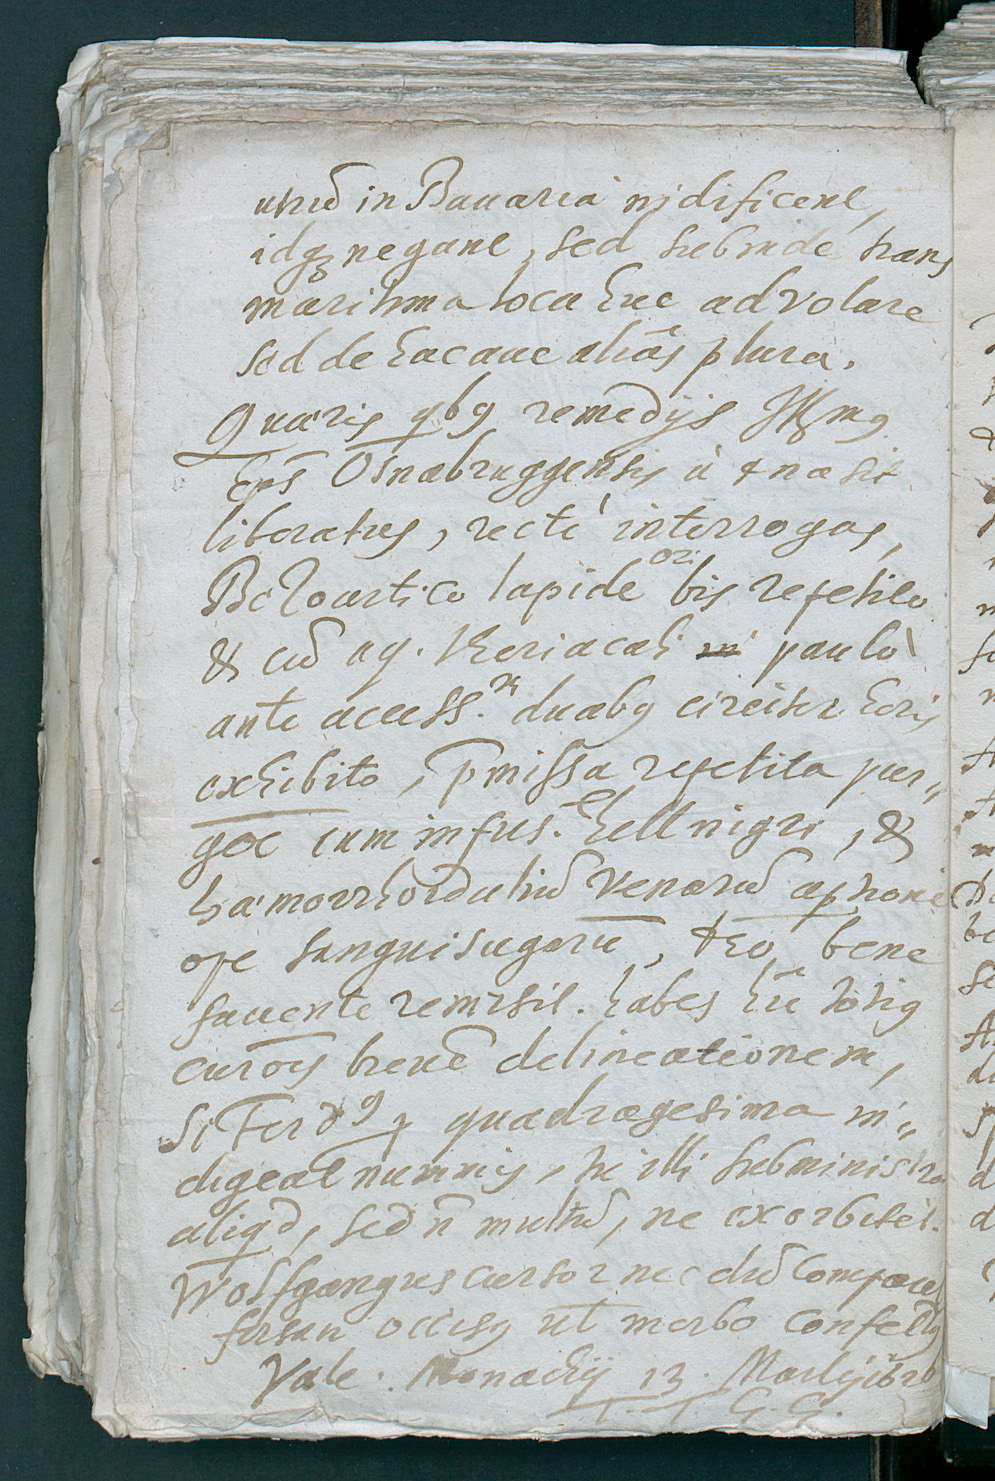 utrū in Bauaria nidificent,
idq; negant, sed subinde trans
maritima loca huc advolare
sed de hac aue aliâs plura.
Quæris qbq remedijs Illmq
Eps Osnabruggensis à 4na sit
liberatus, rectè interrogas,
Bezoartico lapide ori bis repetito
& cū aq. theriacali paulò
ante access. duabq circiter horis
exhibito, p̄missa repetita pur„
gaōe cum infus. Hell nigri, &
hæmorrhoidaliū venarū
ope sanguisugarū, Deo bene
fauente remisit. habes hîc totiq
curaōis breuē delineationem,
Si Ferdq p quadragesima in„
digeat nummis, tu illi subministra
aliqd, sed n̄ multū, ne exorbitet.
Wolfgangus cursor nec dū comparet
forsan occisq ut morbo confectq
Vale. Monachij 13. Martij
G. G.